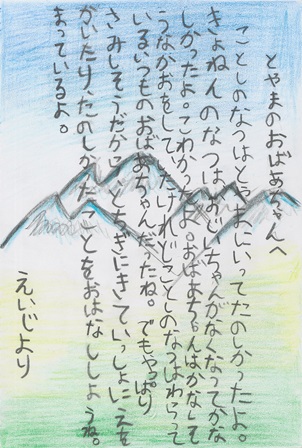 とやまのおばあちゃんへ
ことしのなつはとうまにいってたのしかったよ。
きょねんのなつは、おじいちゃんがなくなってかな
しかったよ。こわかったよ。おばあちゃんはかなしそ
うなかおをしていたけれどことしのなつはわらって
いるいつものおばあちゃんだったね。でもやっぱり
さみしそうだから、とちぎにきていっしょにえを
かいたり、たのしかったことをおはなししようね。
まっているよ。
えいじより